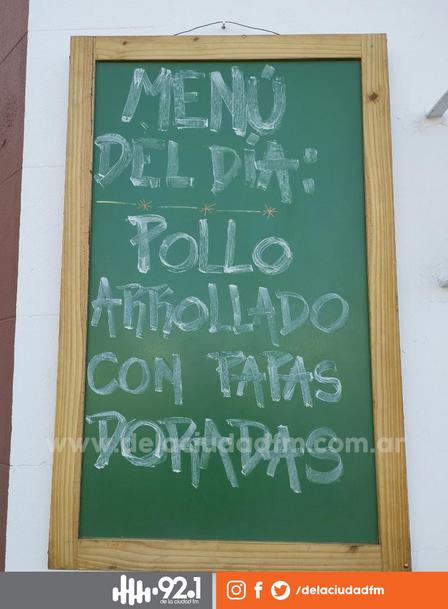 MENÚ
DEL DÍA:
POLLO
ARROLLADO
CON PAPAS
DORADAS
www.delaciudadfm.com.ar
92.1
de la ciudad fm
/delaciudadfm